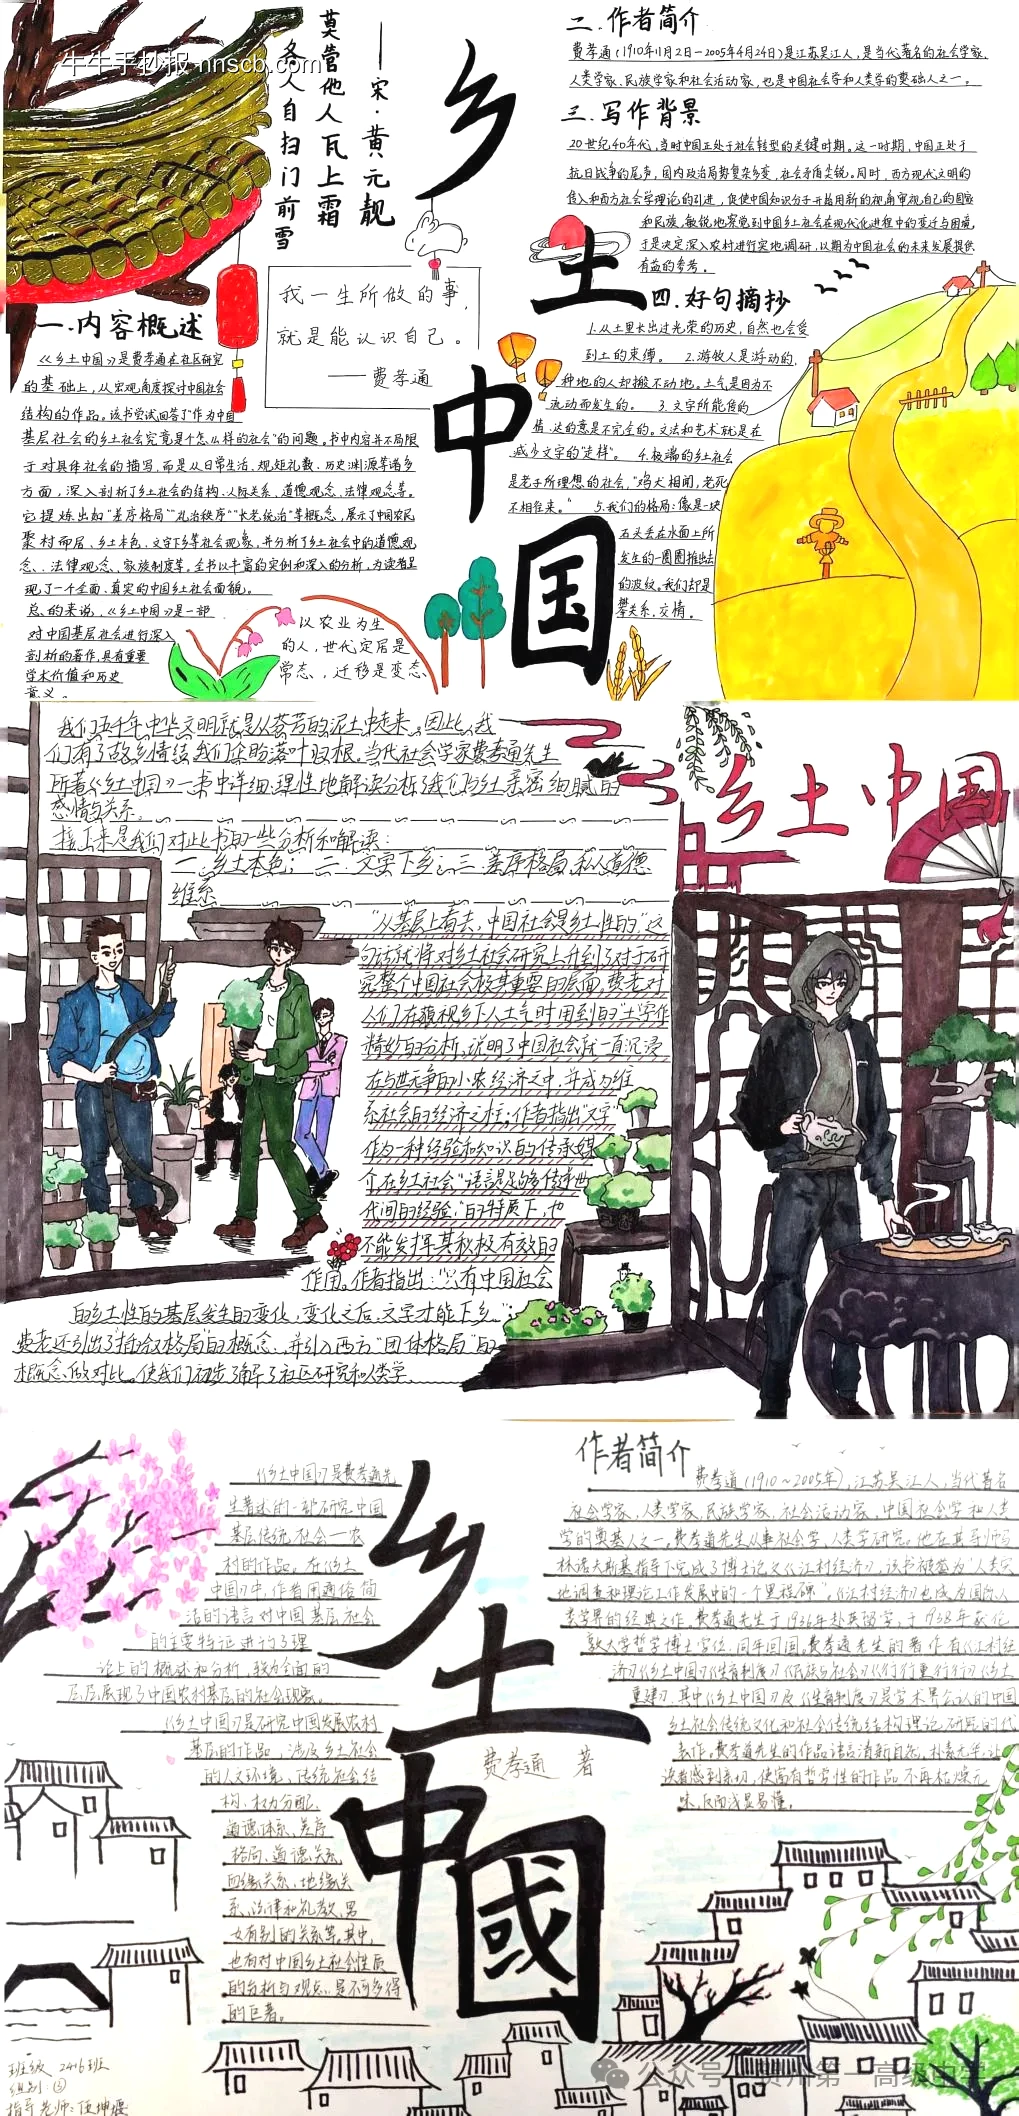 牛牛手抄报 nnscb.com
——宋·黄元靓
莫管他人瓦上霜
各人自扫门前雪
乡土中国
我一生所做的事,
就是能认识自己。
——费孝通
一.内容概述
《乡土中国》是费孝通在社区研究
的基础上,从宏观角度探讨中国社会
结构的作品。该书尝试回答了"作为中国
基层社会的乡土社会究竟是个怎么样的社会"的问题。书中内容并不局限
于对具体社会的描写,而是从日常生活、规矩礼数、历史渊源等诸多
方面,深入剖析了乡土社会的结构、人际关系、道德观念、法律观念等。
它提炼出如"差序格局""礼治秩序""长老统治"等概念,展示了中国农民
聚村而居、乡土本色、文字下乡等社会现象,并分析了乡土社会中的道德观
念、法律观念、家族制度等。全书以丰富的实例和深入的分析,为读者呈
现了一个全面、真实的中国乡土社会面貌。
总的来说,《乡土中国》是一部
对中国基层社会进行深入
剖析的著作,具有重要
学术价值和历史
意义。
以农业为生
的人,世代定居是
常态,迁移是变态
二.作者简介
费孝通(1910年11月2日-2005年4月24日)是江苏吴江人,是当代著名的社会学家,
人类学家、民族学家和社会活动家,也是中国社会学和人类学的奠基人之一。
三.写作背景
20世纪40年代,当时中国正处于社会转型的关键时期。这一时期,中国正处于
抗日战争的尾声,国内政治局势复杂多变,社会矛盾尖锐。同时,西方现代文明的
传入和西方社会学理论的引进,促使中国知识分子开始用新的视角审视自己的国家
和民族,敏锐地察觉到中国乡土社会在现代化进程中的变迁与困境,
于是决定深入农村进行实地调研,以期为中国社会的未来发展提供
有益的参考。
四.好句摘抄
1.从土里长出过光荣的历史,自然也会受
到土的束缚。 2.游牧人是浮动的,
种地的人却搬不动地。土气是因为不
流动而发生的。 3.文字所能传的
情、达的意是不完全的。文法和艺术就是在
减少文字的"走样"。 4.极端的乡土社会
是老子所理想的社会,"鸡犬相闻,老死
不相往来。" 5.我们的格局:像是一块
石头丢在水面上所
发生的一圈圈推出去
的波纹。我们却是
攀关系、交情。
我们五千年中华文明就是从芬芳的泥土中走来。因此,我
们有了故乡情结,我们企盼落叶归根。当代社会学家费孝通先生
所著《乡土中国》一书中详细、理性地解读分析了我们与乡土亲密细腻的
感情与关系。
接下来是我们对此书的一些分析和解读:
一.乡土本色; 二.文字下乡; 三.差序格局,私人道德
维系
"从基层上看去,中国社会是乡土性的"这
句话就将对乡土社会研究上升到了对于研
究整个中国社会极其重要的层面,费老对
人们在藐视乡下人土气时用到的"土"字作
精妙的分析,说明了中国社会就一直沉浸
在与世无争的小农经济之中,并成为维
系社会的经济之柱;作者指出"文字"
作为一种经验和知识的传承媒
介在乡土社会"语言足够传递世
代间的经验"的特质下,也
不能发挥其积极有效的
作用。作者指出:"只有中国社会
的乡土性的基层发生的变化,变化之后,文字才能下乡。"
费老还引出了"差序格局"的概念,并引入西方"团体格局"的
概念,做对比。使我们初步了解了社区研究和人类学。
乡土中国
《乡土中国》是费孝通先
生著述的一部研究中国
基层传统社会—农
村的作品。在《乡土
中国》中,作者用通俗、简
洁的语言对中国基层社会
的主要特征进行了理
论上的概述和分析,较为全面的
层层展现了中国农村基层的社会现象。
《乡土中国》是研究中国发展农村
基层的作品,涉及乡土社会
的人文环境、传统社会结
构、权力分配、
道德体系、差序
格局、道德关系
血缘关系、地缘关
系、法律和礼教、男
女有别的关系等。其中,
也有对中国乡土社会性质
的分析与观点,是不可多得
的巨著。
班级 2416班
组别:③
乡土中國
费孝通 著
作者简介
费孝通(1910~2005年),江苏吴江人,当代著名
社会学家、人类学家、民族学家、社会活动家,中国社会学和人类
学的奠基人之一。费孝通先生从事社会学、人类学研究。他在其导师马
林诺夫斯基指导下完成了博士论文《江村经济》,该书被誉为"人类实
地调查和理论工作发展中的一个里程碑"。《江村经济》也成为国际人
类学界的经典之作。费孝通先生于1936年赴英留学,于1938年获伦
敦大学哲学博士学位,同年回国。费孝通先生的著作有《江村经
济》《乡土中国》《生育制度》《民族与社会》《行行重行行》《乡土
重建》,其中《乡土中国》及《生育制度》是学术界公认的中国
乡土社会传统文化和社会传统结构理论研究的代
表作。费孝通先生的作品语言清新自然,朴素无华,让
读者感到亲切,使富有哲学性的作品不再枯燥无
味,反而浅显易懂。
公众号·贺州第一高级中学